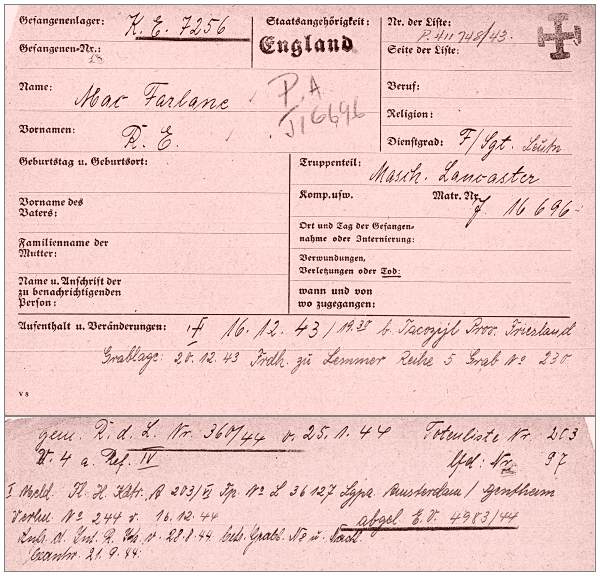 Gefangenenlager: K. E. 7256
Staatsangehörigkeit:
England
Nr. der Liste:
P. 411 748/43.
Gefangenen-Nr.:
18
Seite der Liste:
Name: Mac Farlane
P.A
J16696
Beruf:
Religion:
Vornamen: R. E.
Dienstgrad: F/Sgt.
Geburtstag u. Geburtsort:
Truppenteil: Masch. Lancaster
Komp.usw.
Matr. Nr. J 16 696-
Vorname des
Vaters:
Ort und Tag der Gefangen-
nahme oder Internierung:
Familienname der
Mutter:
Verwundungen,
Verletzungen oder Tod:
Name u. Anschrift der
zu benachrichtigenden
Person:
wann und von
wo zugegangen:
Aufenthalt u. Veränderungen: 16. 12. 43 / 19.30 b. Tacozijl Prov. Friesland
Grablage: 20. 12. 43 Frdh. zu Lemmer Reihe 5 Grab No 230.
V 8
gem. R. d. L. Nr. 360/44 v. 25. 1. 44 Totenliste Nr. 203
W. 4 a Ref. IV lfd. Nr. 97
I Meld. Fl. H. Kdtr. B 203/VI No L 36127 Amsterdam /
No 244 v. 16. 12. 44 abgel E. V. 4983/44
v. 28. 8. 44 betr. Grab No 8 u.
21. 9. 44.